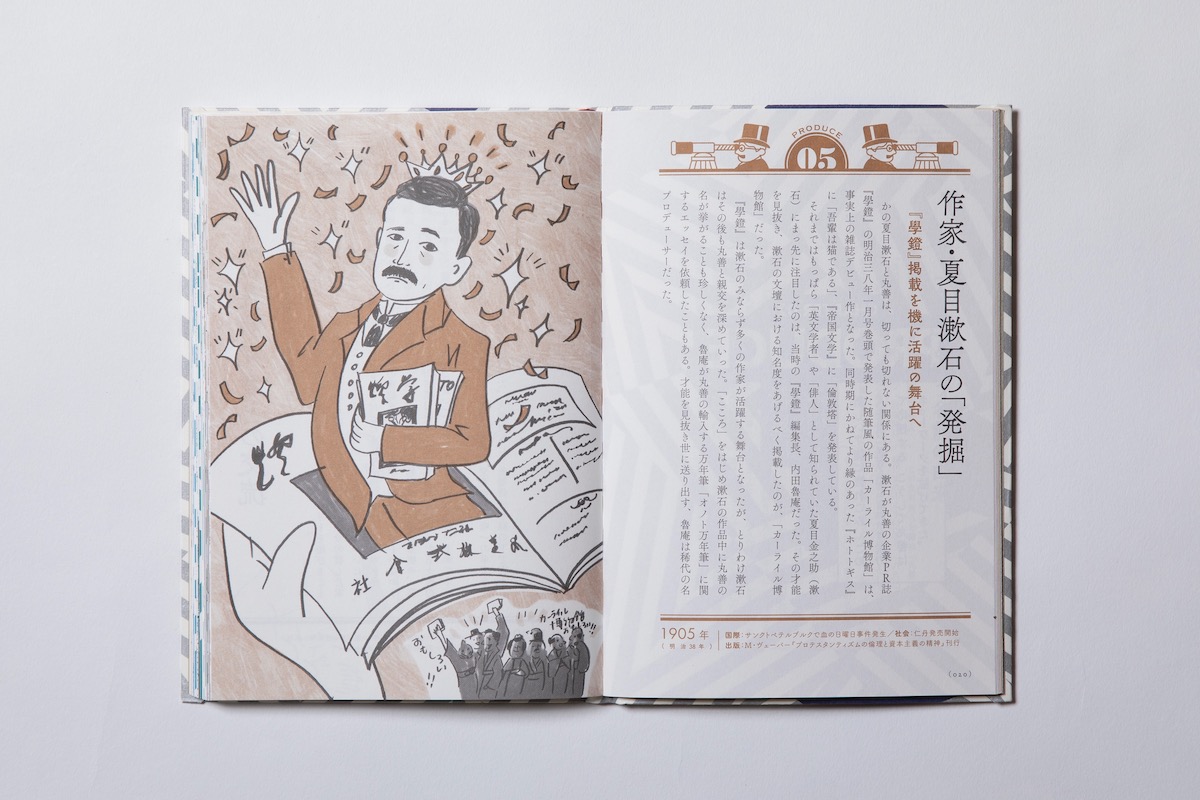 PRODUCE
05
作家・夏目漱石の「発掘」
『學鐙』掲載を機に活躍の舞台へ
かの夏目漱石と丸善は、切っても切れない関係にある。漱石が丸善の企業PR誌
『學鐙』の明治三八年一月号巻頭で発表した随筆風の作品「カーライル博物館」は、
事実上の雑誌デビュー作となった。同時期にかねてより縁のあった『ホトトギス』
に「吾輩は猫である」、『帝国文学』に「倫敦塔」を発表している。
それまではもっぱら「英文学者」や「俳人」として知られていた夏目金之助（漱
石）にまっ先に注目したのは、当時の『學鐙』編集長、内田魯庵だった。その才能
を見抜き、漱石の文壇における知名度をあげるべく掲載したのが、「カーライル博
物館」だった。
『學鐙』は漱石のみならず多くの作家が活躍する舞台となったが、とりわけ漱石
はその後も丸善と親交を深めていった。「こころ」をはじめ漱石の作品中に丸善の
名が挙がることも珍しくなく、魯庵が丸善の輸入する万年筆「オノト万年筆」に関
するエッセイを依頼したこともある。才能を見抜き世に送り出す、魯庵は稀代の名
プロデューサーだった。
1905年
［明治38年］
国際：サンクトペテルブルクで血の日曜日事件発生／社会：仁丹発売開始
出版：M・ヴェーバー『プロテスタンティズムの倫理と資本主義の精神』刊行
（020）
カーライル
博物館
おもしろい!!